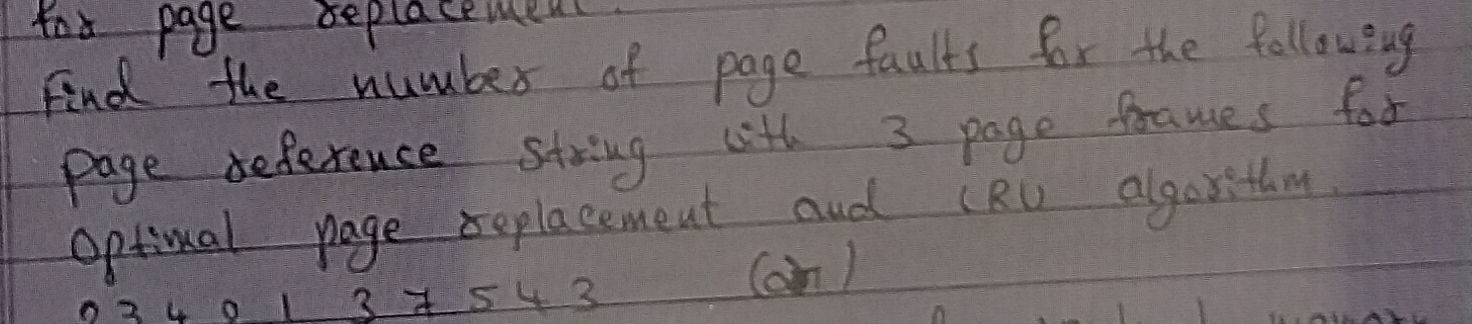 for page replacement.
Find the number of page faults for the following
page reference string with 3 page frames for
optimal page replacement and LRU algorithm.
3 4 1 3 7 5 4 3 (or)